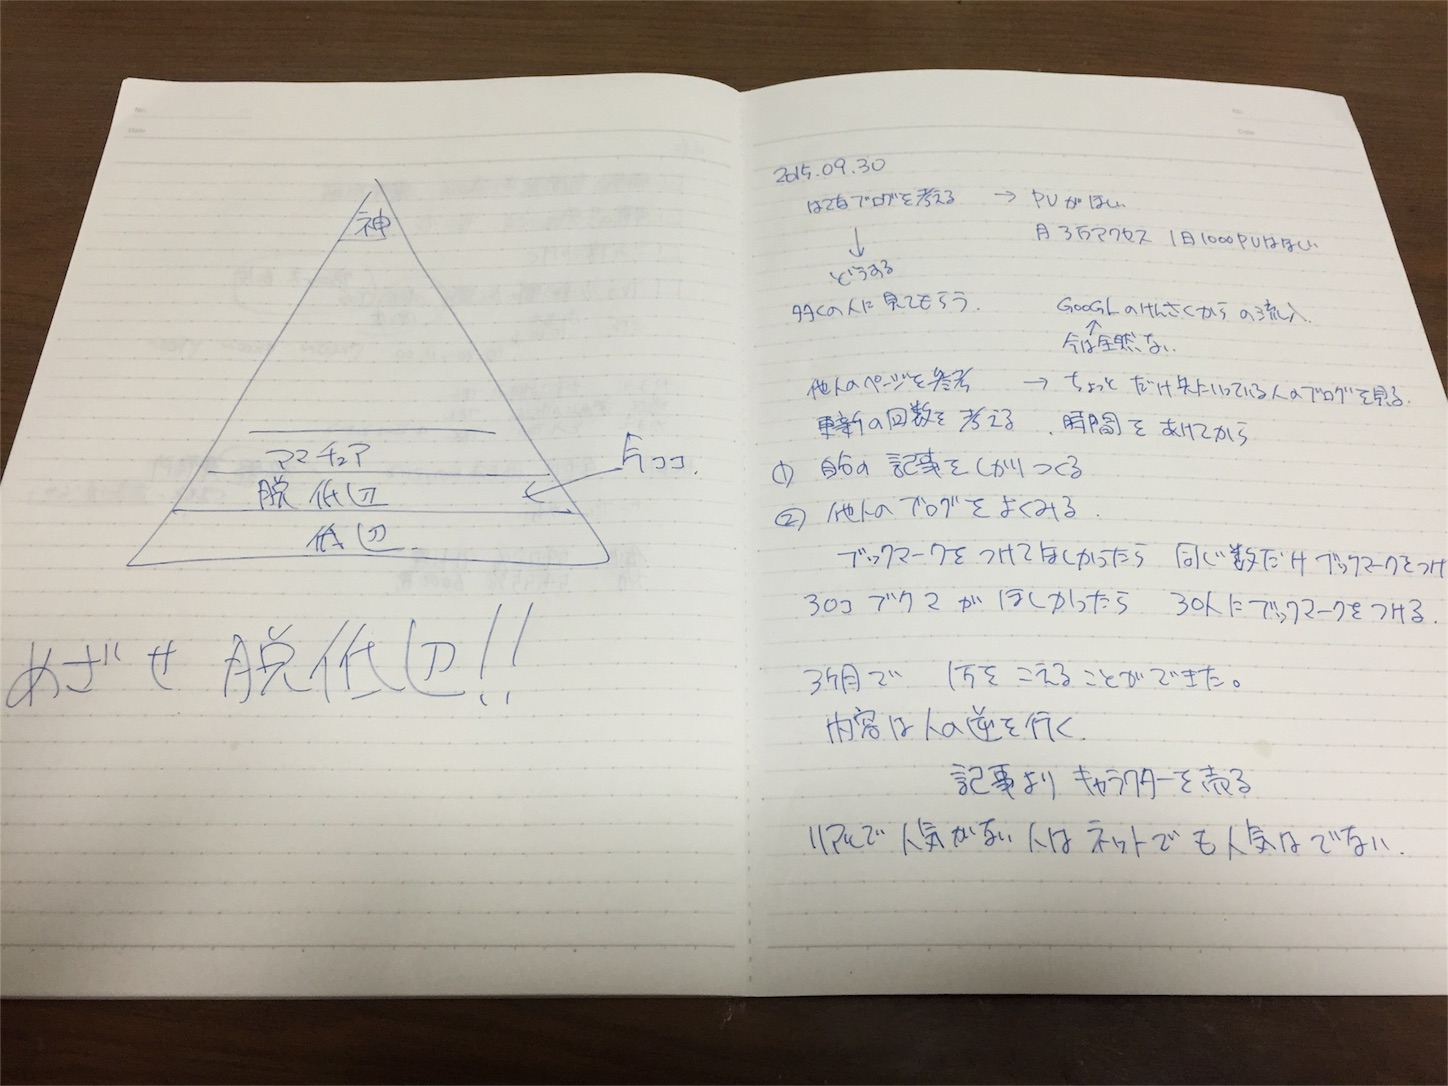 神
アマチュア
脱低辺
今ココ.
低辺
めざせ 脱低辺!!
2015.09.30
はてなブログを考える → PVがほしい
月3万アクセス 1日1000PVはほしい
↓
どうする
多くの人に見てもらう. GooGLのけんさくからの流入.
↑
今は全然ない.
他人のページを参考 → ちょっとだけ先に行っている人のブログを見る.
更新の回数を考える. 時間をあけてから
① 自分の記事をしっかりつくる
② 他人のブログをよくみる.
ブックマークをつけてほしかったら 同じ数だけブックマークをつけ
30コブクマがほしかったら 30人にブックマークをつける.
3ヶ月で 1万をこえることができた。
内容は人の逆を行く
記事よりキャラクターを売る
リアルで人気がない人はネットでも人気はでない.